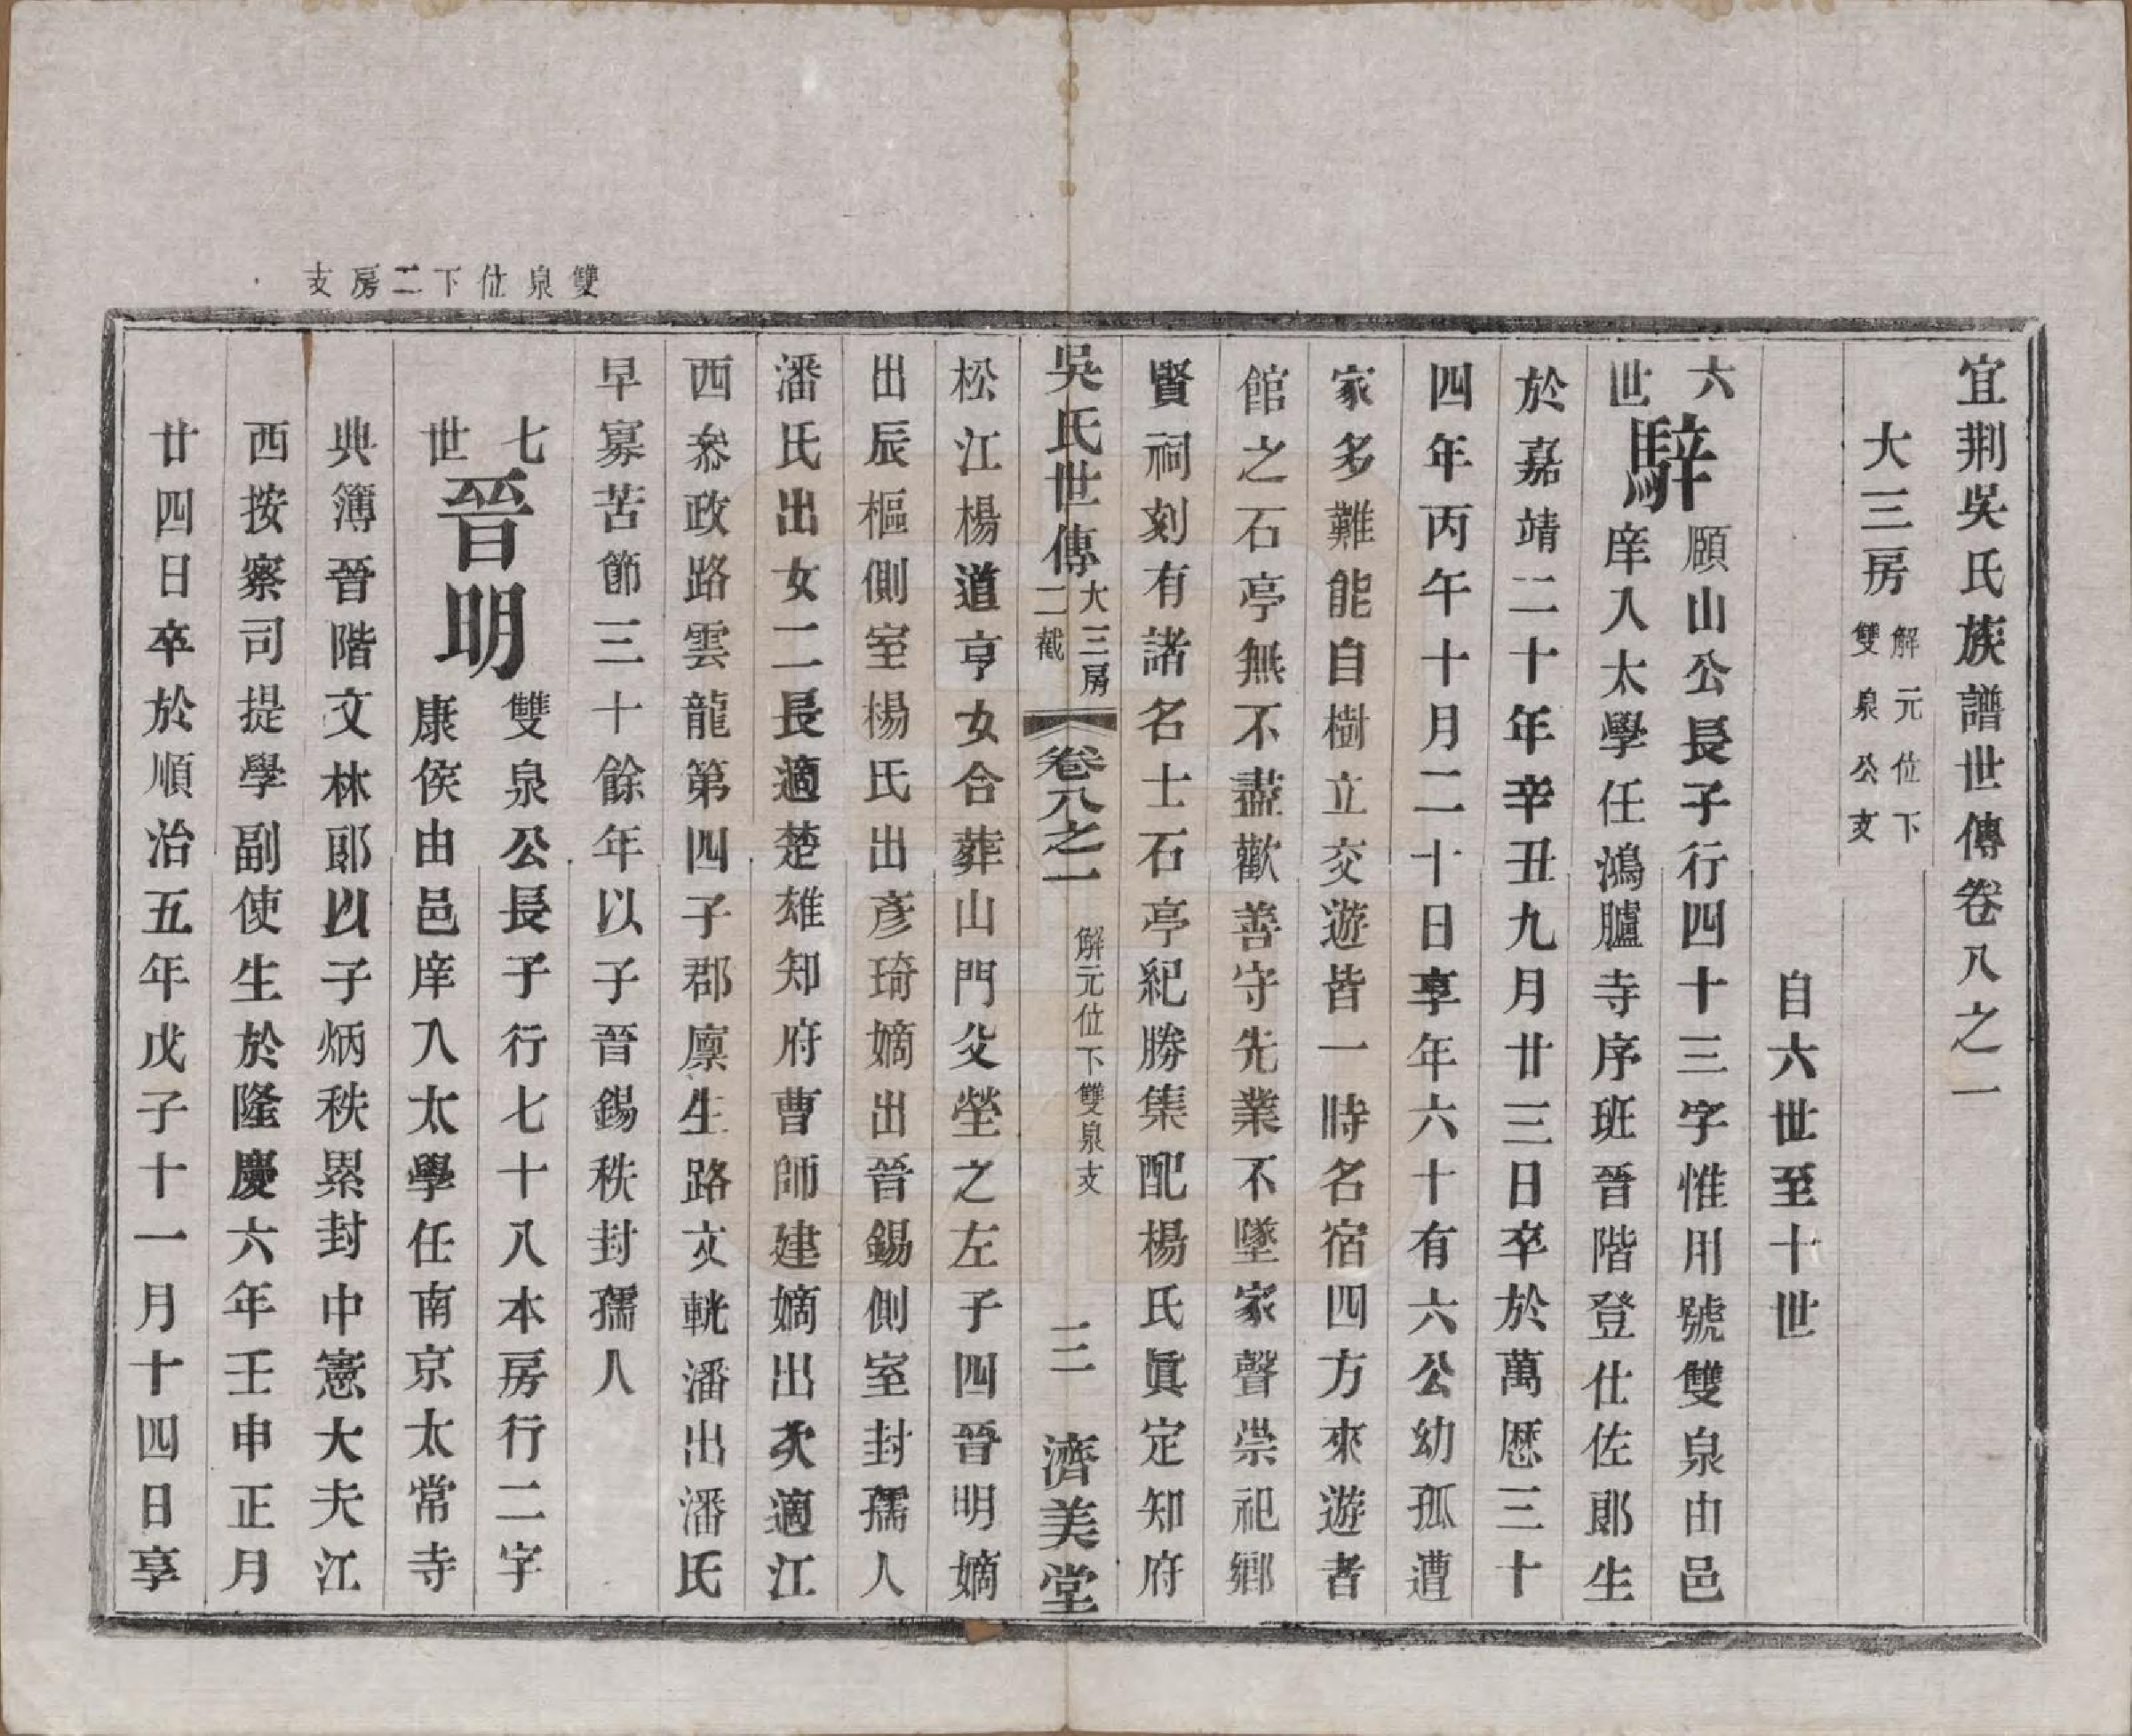 宜荆吳氏族譜世傳卷八之一
大三房 解元位下 雙泉公支
自六世至十世
六世 騂 願山公長子行四十三字惟用號雙泉由邑
庠入太學任鴻臚寺序班晉階登仕佐郎生
於嘉靖二十年辛丑九月廿三日卒於萬歷三十
四年丙午十月二十日享年六十有六公幼孤遭
家多難能自樹立交遊皆一時名宿四方來遊者
館之石亭無不盡歡善守先業不墜家聲崇祀鄉
賢祠刻有諸名士石亭紀勝集配楊氏眞定知府
吳氏世傳 大三房 二截 卷八之一 解元位下雙泉支 三 濟美堂
松江楊道亨女合葬山門父塋之左子四晉明嫡
出辰樞側室楊氏出彥琦嫡出晉錫側室封孺人
潘氏出女二長適楚雄知府曹師建嫡出次適江
西叅政路雲龍第四子郡廩生路文軦潘出潘氏
早寡苦節三十餘年以子晉錫秩封孺人
雙泉位下二房支
七世 晉明 雙泉公長子行七十八本房行二字
康侯由邑庠入太學任南京太常寺
典簿晉階文林郎以子炳秩累封中憲大夫江
西按察司提學副使生於隆慶六年壬申正月
廿四日卒於順治五年戊子十一月十四日享